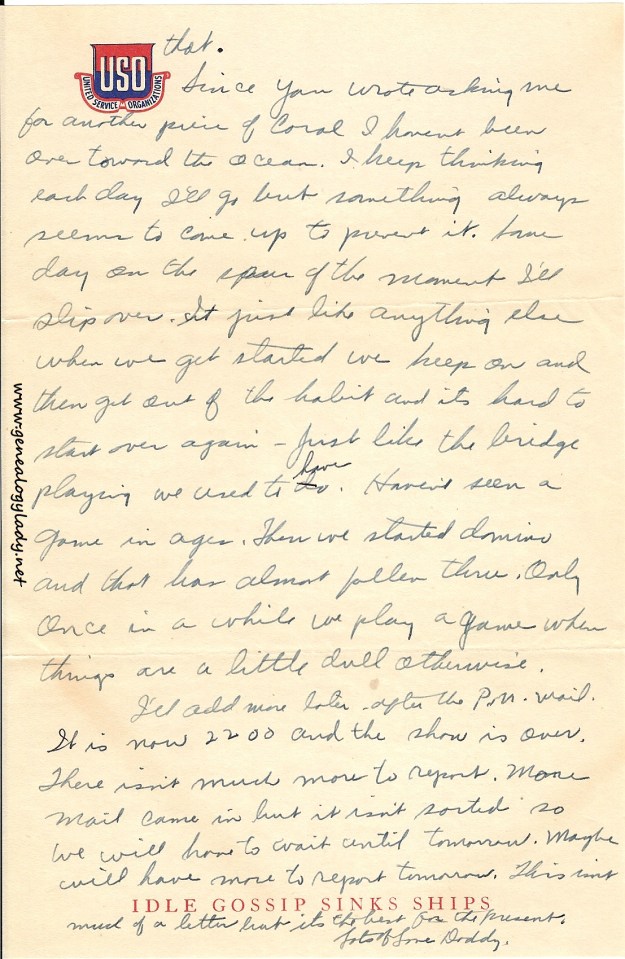 that.
USO
UNITED SERVICE ORGANIZATIONS
Since you wrote asking me
for another piece of Coral I havent been
over toward the ocean. I keep thinking
each day I'll go but something always
seems to come up to prevent it. Some
day on the spur of the moment I'll
slip over. It just like anything else
when we get started we keep on and
then get out of the habit and its hard to
start over again - Just like the bridge
playing we used to do have. Haven't seen a
game in ages. Then we started domino
and that has almost fallen thru. Only
once in a while we play a game when
things are a little dull otherwise.
I'll add more later - after the P.M. mail.
It is now 2200 and the show is over.
There isn't much more to report. More
mail came in but it isn't sorted so
we will have to wait until tomorrow. Maybe
will have more to report tomorrow. This isnt
IDLE GOSSIP SINKS SHIPS
much of a letter but its the best for the present.
Lots of Love Daddy.
www.genealogylady.net